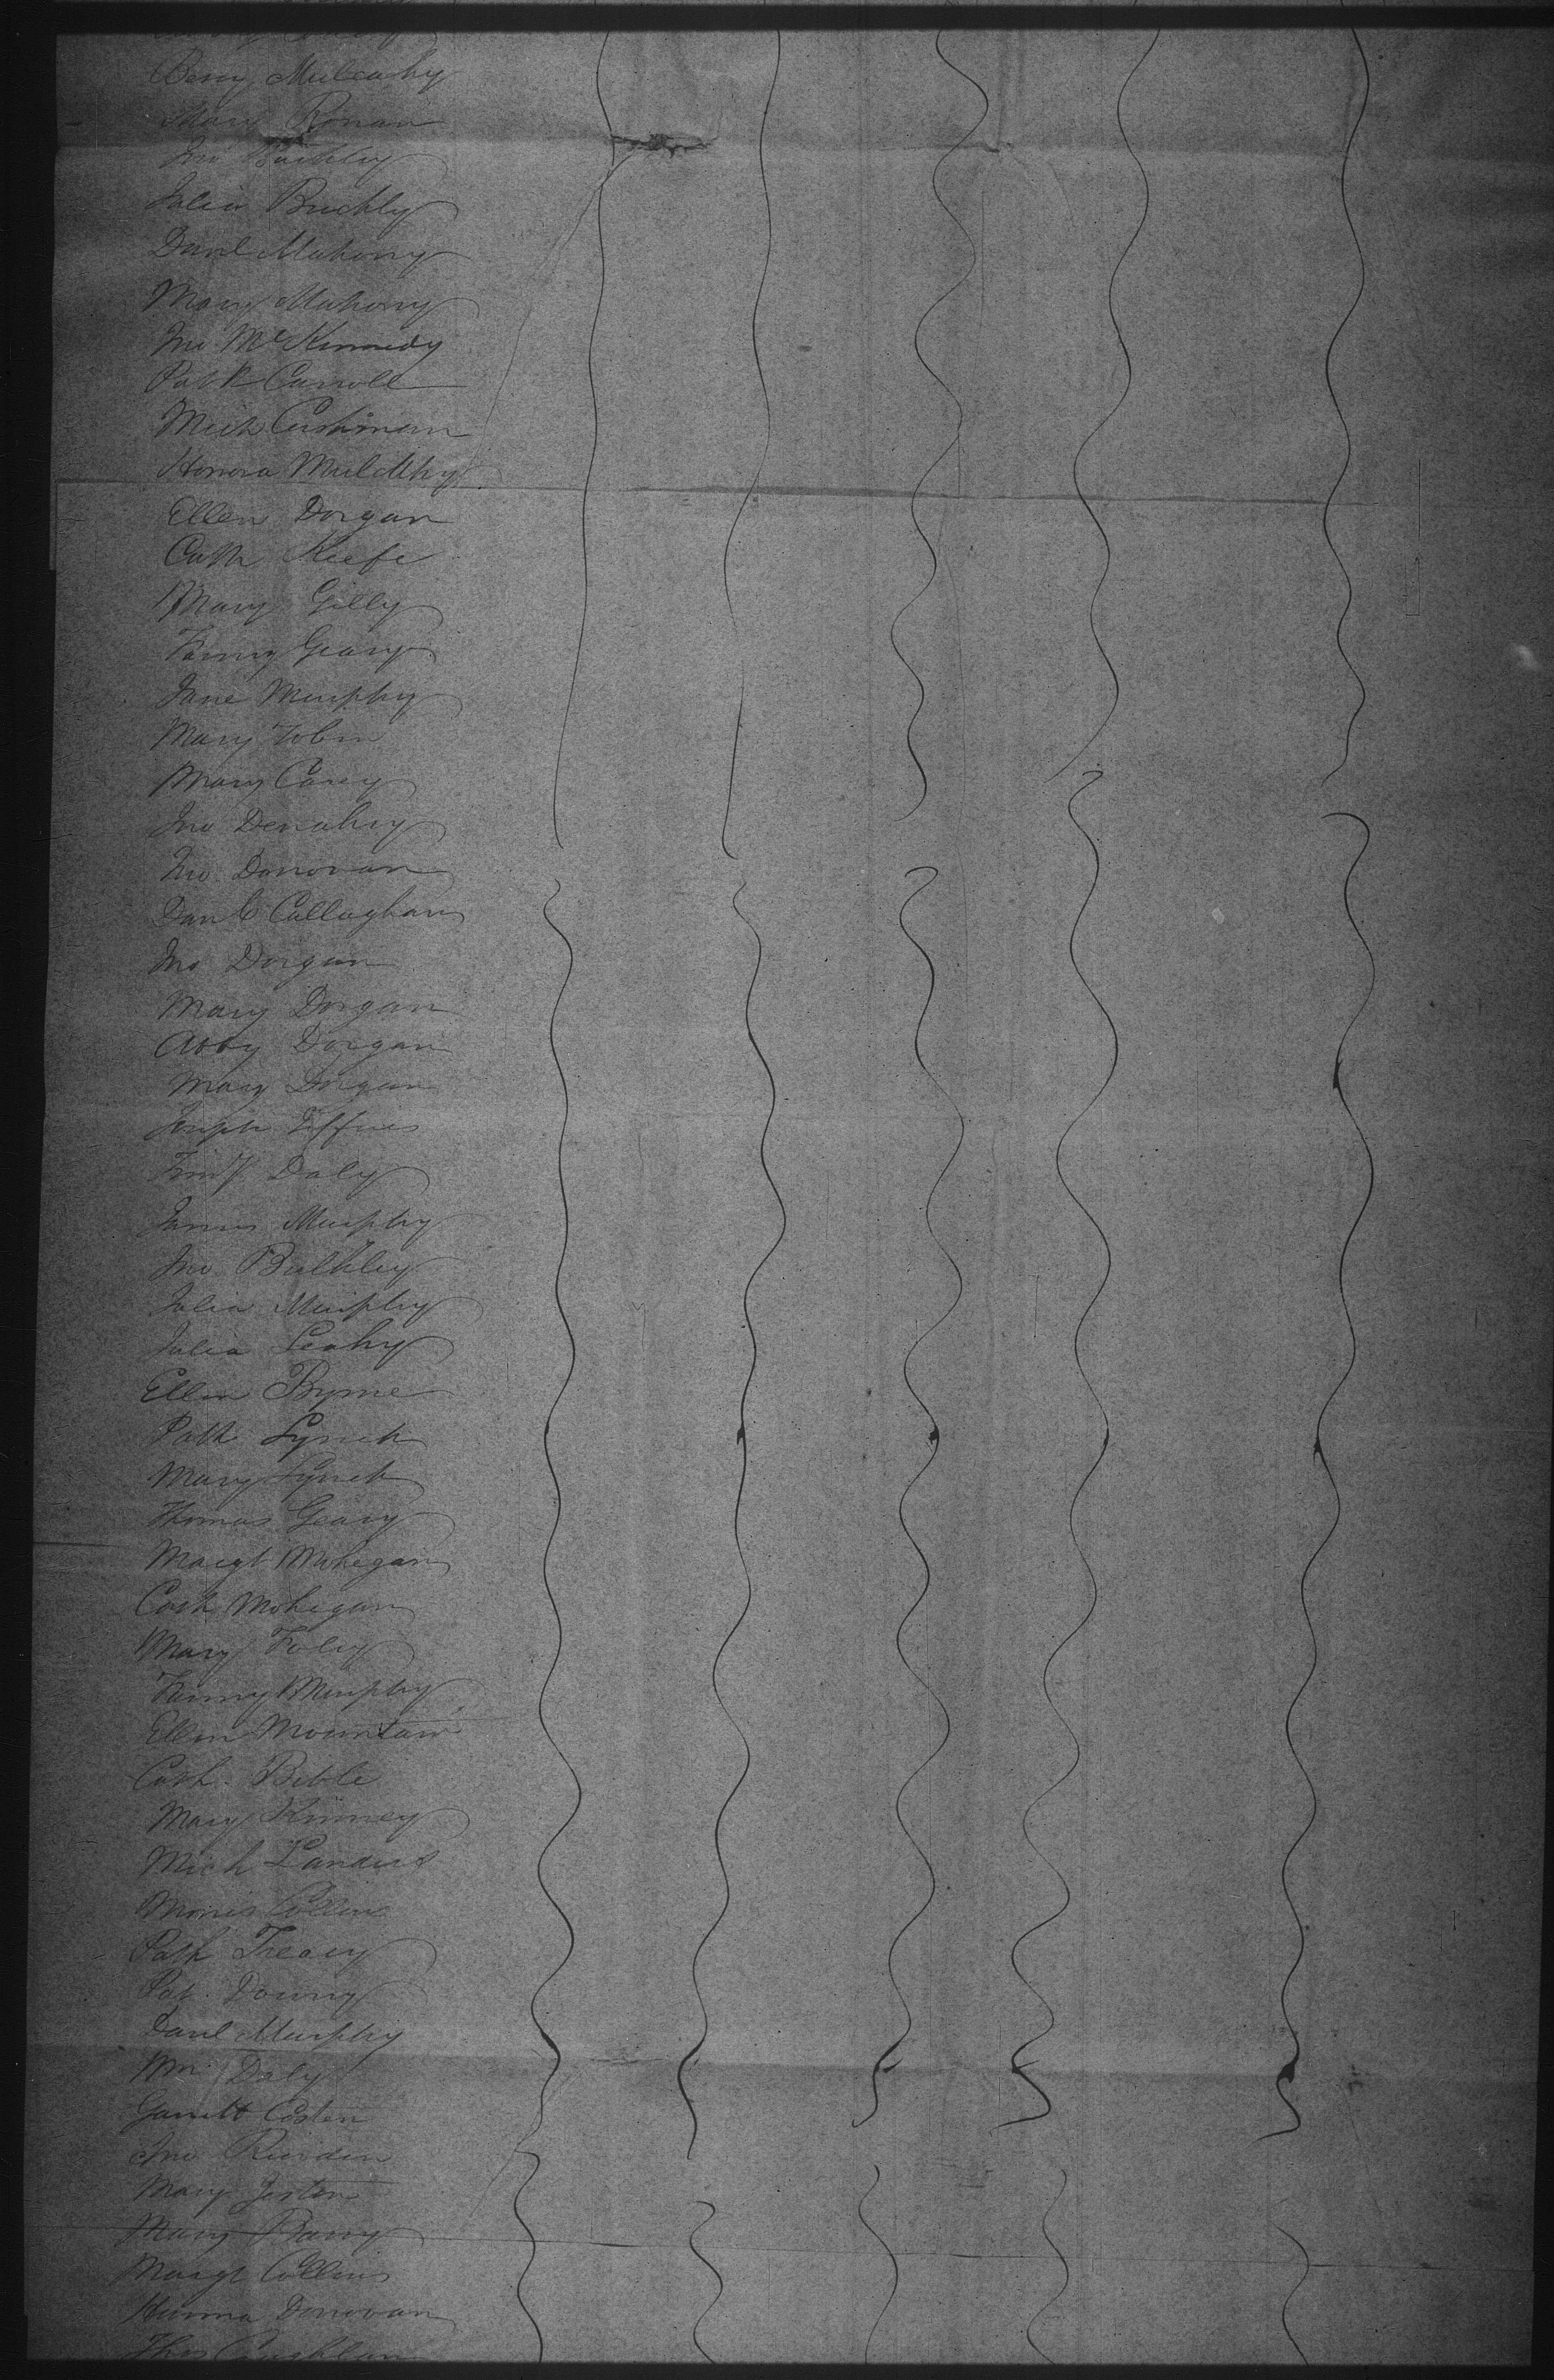 Bessy Mulcahy
Mary Ronan
Jno Buckley
Julia Buckly
Danl Mahony
Mary Mahony
Jno McKennedy
Patk Carroll
Mich Cushman
Honora
Ellen Dorgan
Cath Keefe
Mary Gilly
Fanny Geary
Jane Murphy
Mary Tobin
Mary Carey
Jno Denahy
Jno Donovan
Dan O Callaghan
Jno Dorgan
Mary Dorgan
Abby Dorgan
Mary Dorgan
Joseph
Daly
James Murphy
Jno Bulkley
Julia Murphy
Julia Leahy
Ellen Byrne
Patk Lynch
Mary Lynch
Thomas Geary
Margt Mohegan
Cath Mohegan
Mary Foley
Fanny Murphy
Ellen Mountain
Cath. Bible
Mary Kinney
Mich Landers
Morris Collins
Patk Treacy
Pat. Downy
Danl Murphy
Wm Daly
Garrett Costen
Jno Reirden
Mary
Mary Barry
Margt Collins
Hanna Donovan
Thos Coughlan